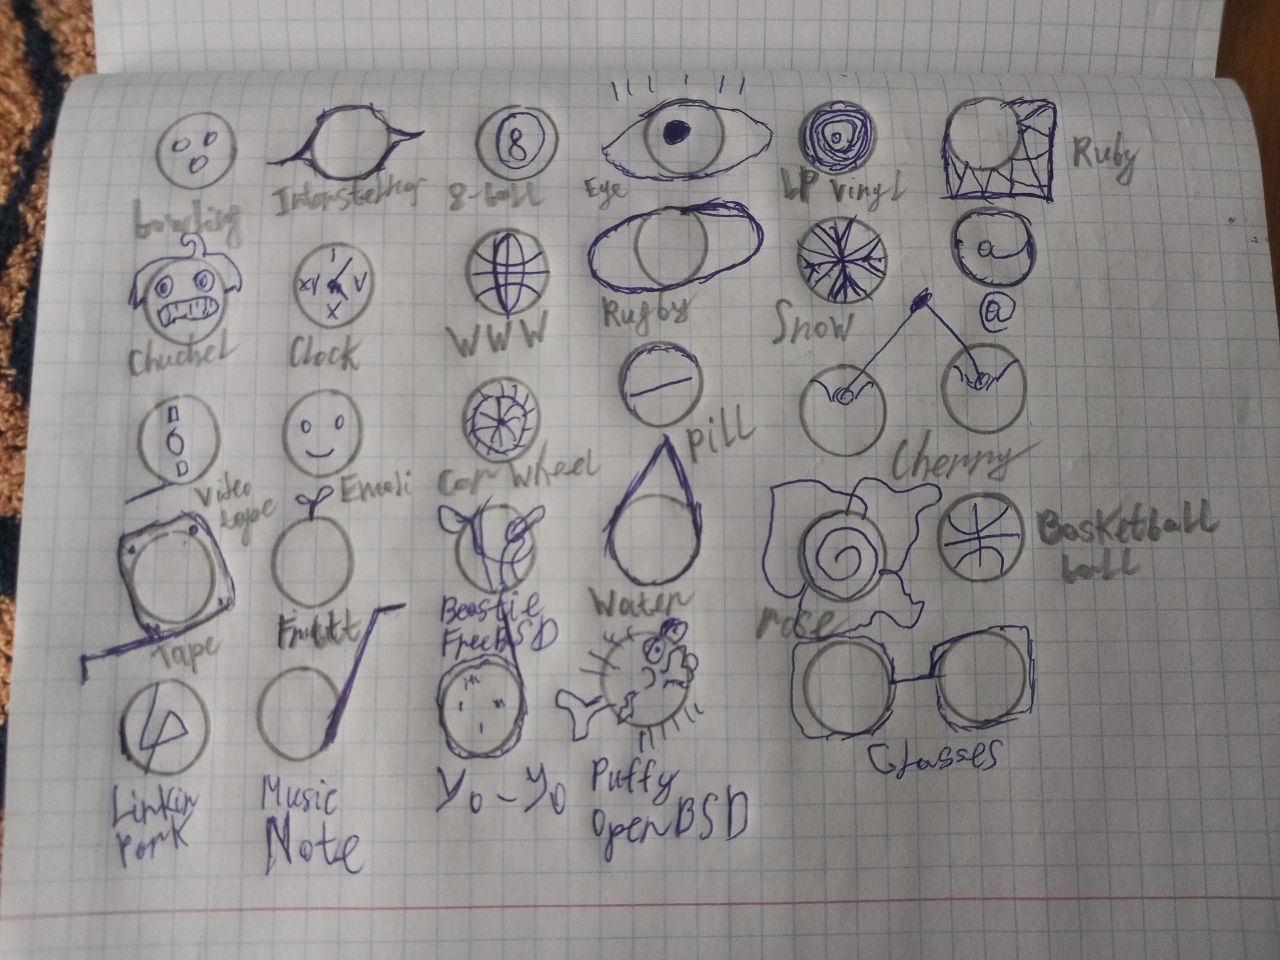 bowling
Interstellar
8
8-ball
Eye
LP Vinyl
Ruby
Chuchel
I
XI V
X
Clock
WWW
Rugby
Snow
@
@
Video
tape
Emoji
Car Wheel
pill
Cherry
Tape
Fruit
Beastie
FreeBSD
Water
rose
Basketball
ball
Linkin
Park
Music
Note
Yo-Yo
Puffy
OpenBSD
Glasses